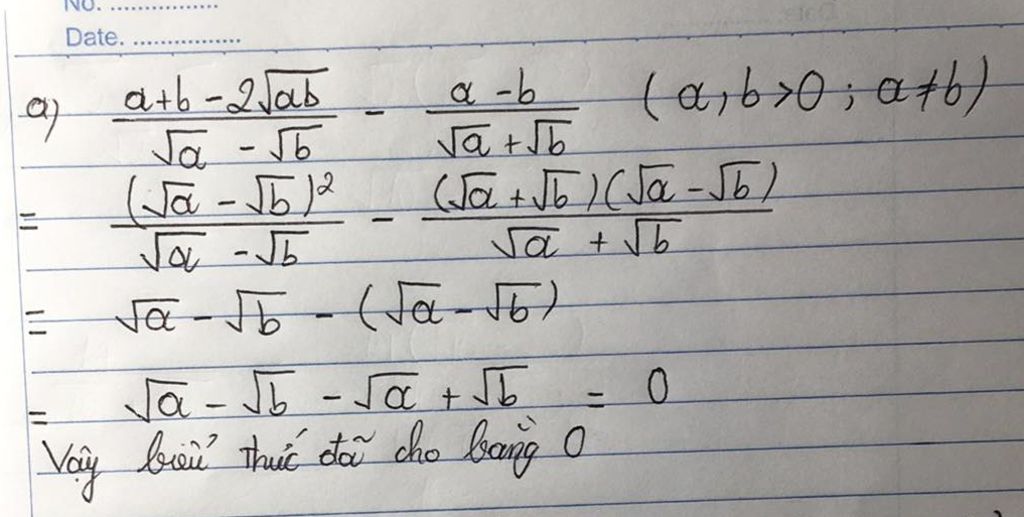 No. ................
Date. ................
a) \frac{a+b-2\sqrt{ab}}{\sqrt{a}-\sqrt{b}} - \frac{a-b}{\sqrt{a}+\sqrt{b}} (a,b>0; a≠b)
= \frac{(\sqrt{a}-\sqrt{b})^2}{\sqrt{a}-\sqrt{b}} - \frac{(\sqrt{a}+\sqrt{b})(\sqrt{a}-\sqrt{b})}{\sqrt{a}+\sqrt{b}}
= \sqrt{a}-\sqrt{b}-(\sqrt{a}-\sqrt{b})
= \sqrt{a}-\sqrt{b}-\sqrt{a}+\sqrt{b} = 0
Vậy biểu thức đã cho bằng 0